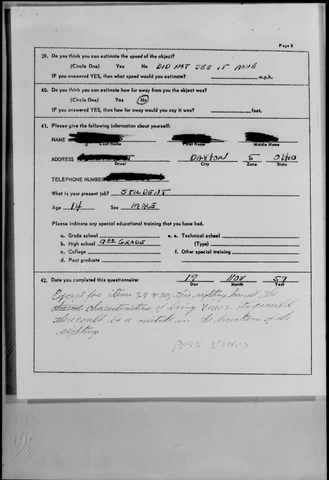 Page 8
39. Do you think you can estimate the speed of the object?
(Circle One) Yes No DID NOT SEE IT MOVE
IF you answered YES, then what speed would you estimate? m.p.h.
40. Do you think you can estimate how far away from you the object was?
(Circle One) Yes No
IF you answered YES, then how far away would you say it was? feet.
41. Please give the following information about yourself:
NAME
Last Name First Name Middle Name
ADDRESS DAYTON 5 OHIO
Street City Zone State
TELEPHONE NUMBER
What is your present job? STUDENT
Age 14 Sex MALE
Please indicate any special educational training that you have had.
a. Grade school e. Technical school
b. High school 9TH GRADE (Type)
c. College f. Other special training
d. Post graduate
42. Date you completed this questionnaire: 19 NOV 57
Day Month Year
Except for items 29 + 30, this sighting has all the
characteristics of being Venus. It is possible
there could be a mistake in the direction of the
sighting.
POSS VENUS